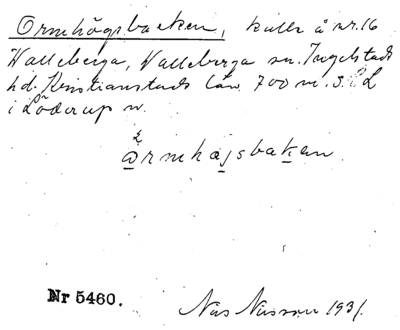 Ormhögsbacken, kulle å nr. 16
Walleberga, Valleberga sn. Ingelstads
hd. Kristianstads län 700 m. S. L
i Löderup n.
ormhøjsbakan
Nr 5460.
Nils Nilsson 1931.